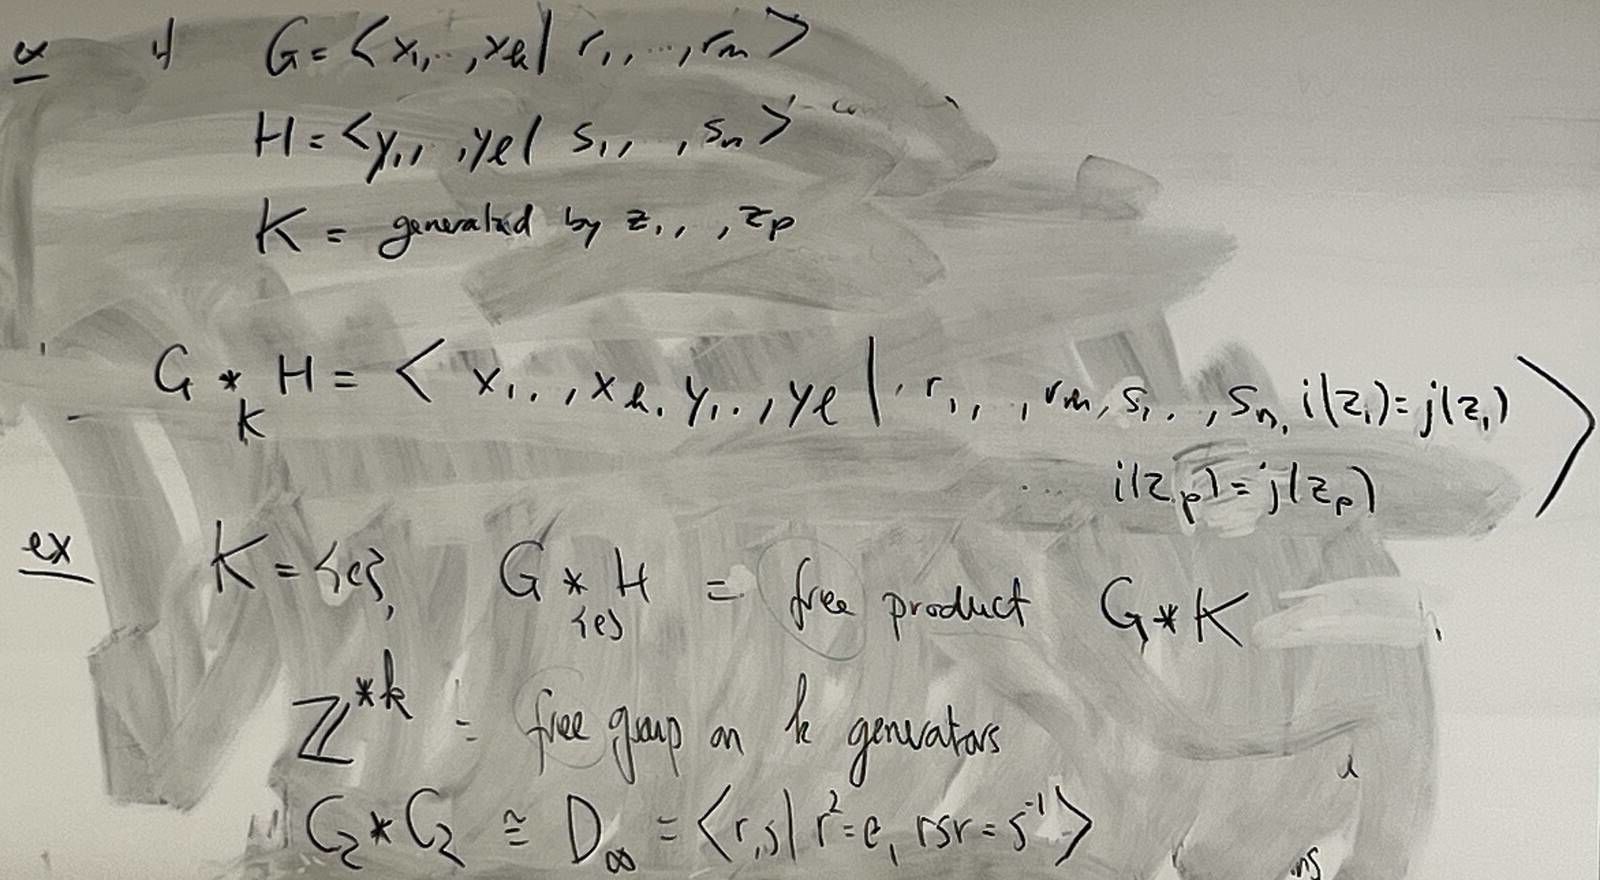 ex if G = < x₁, .. , xₖ | r₁, , ... , rₘ >
H = < y₁, , , yₗ | s₁, , , sₙ >
K = generated by z₁, , , zₚ
G *_K H = < x₁ . . , xₖ, y₁ . . , yₗ | r₁, , . , rₘ, s₁ . . , sₙ, i(z₁) = j(z₁)
... i(zₚ) = j(zₚ) >
ex K = {e}, G *_{e} H = free product G * K
ℤ^{*k} = free group on k generators
C₂ * C₂ ≅ D_∞ = < r, s | r² = e, rsr = s⁻¹ >